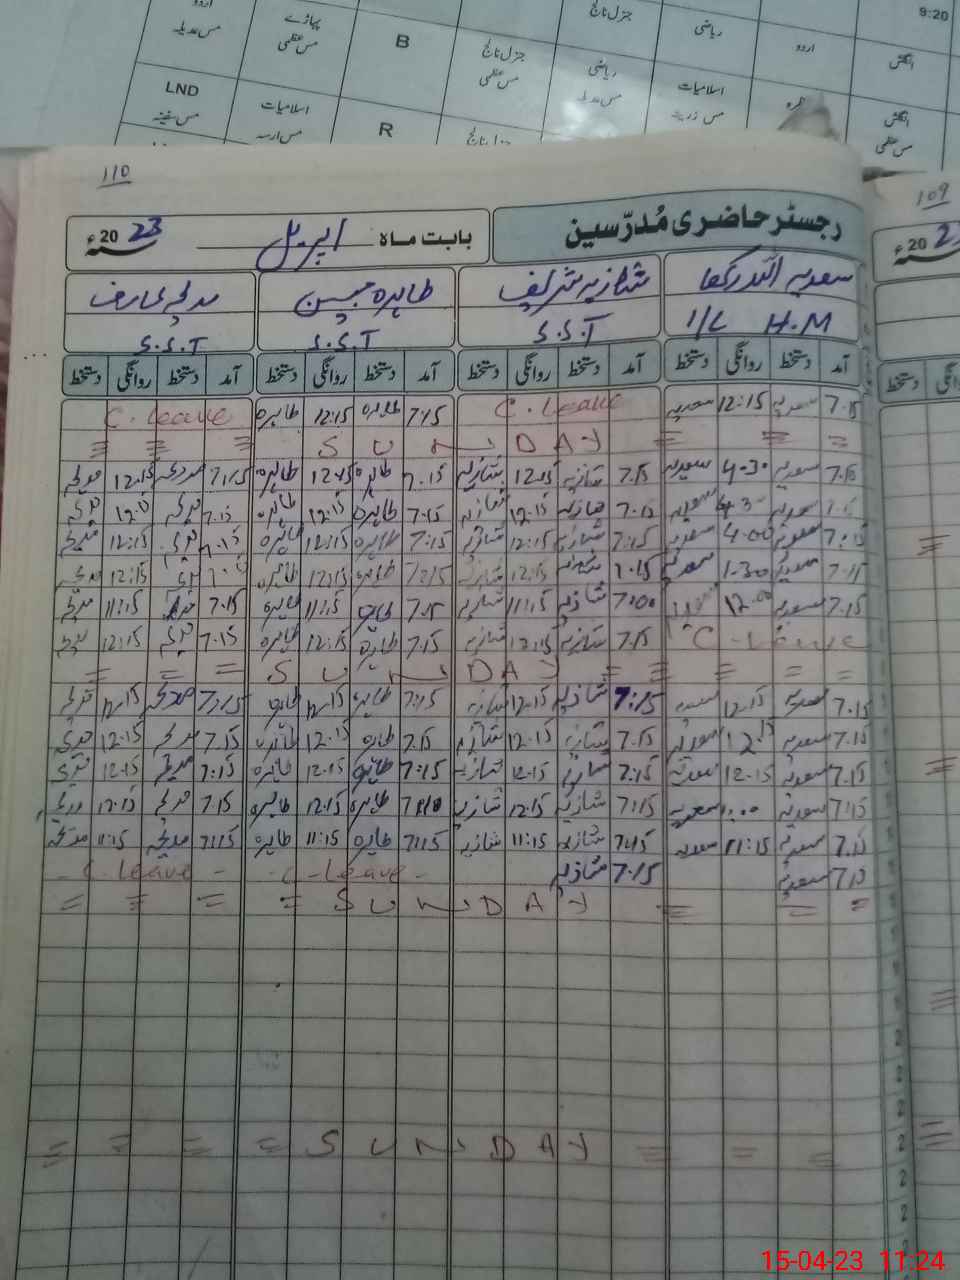 9:20
اردو
مس عدیلہ
پہاڑے
مس عظمیٰ
B
جنرل نالج
مس عظمیٰ
جنرل نالج
ریاضی
مس عدیلہ
ریاضی
اسلامیات
مس زرینہ
اردو
انگلش
LND
مس
اسلامیات
R
جنرل نالج
انگلش
مس عظمیٰ
110
109
رجسٹر حاضری مُدرّسین
بابت ماہ اپریل 2023ء
سعدیہ اللہ رکھا شازیہ شریف طاہرہ مدیحہ عارف
I/C H.M S.S.T S.S.T S.S.T
آمد دستخط روانگی دستخط آمد دستخط روانگی دستخط آمد دستخط روانگی دستخط آمد دستخط روانگی دستخط
7.15 سعدیہ 12:15 سعدیہ C. Leave 7:15 طاہرہ 12:15 طاہرہ C. Leave
= = = SUNDAY = = =
7.15 سعدیہ 4-30 سعدیہ 7.15 شازیہ 12.15 شازیہ 7.15 طاہرہ 12.15 طاہرہ 7:15 مدیحہ 12.15 مدیحہ
سعدیہ سعدیہ 7.15 شازیہ 12.15 شازیہ 7.15 طاہرہ 12.15 طاہرہ 7.15 مدیحہ 12.15 مدیحہ
7:15 سعدیہ 4.00 سعدیہ 7:15 شازیہ 12:15 شازیہ 7:15 طاہرہ 12:15 طاہرہ 7.15 مدیحہ 12:15 مدیحہ
سعدیہ 1-30 سعدیہ 7.15 شازیہ 12:15 شازیہ 7:15 طاہرہ 12:15 طاہرہ مدیحہ 12:15 مدیحہ
7.15 سعدیہ 12.00 7:00 شازیہ 11:15 شازیہ 7.15 طاہرہ 11:15 طاہرہ 7.15 مدیحہ 11:15 مدیحہ
C - Leave 7.15 شازیہ 12:15 شازیہ 7.15 طاہرہ 12:15 طاہرہ 7.15 مدیحہ 12:15 مدیحہ
= = = = SUNDAY = = =
7.15 سعدیہ 12.15 سعدیہ 7:15 شازیہ 12.15 شازیہ 7:15 طاہرہ 12.15 طاہرہ 7:15 مدیحہ 12.15 مدیحہ
7.15 سعدیہ 12.15 سعدیہ 7.15 شازیہ 12.15 شازیہ 7.15 طاہرہ 12.15 طاہرہ 7.15 مدیحہ 12.15 مدیحہ
7.15 سعدیہ 12.15 سعدیہ 7:15 شازیہ 12.15 شازیہ 7:15 طاہرہ 12.15 طاہرہ 7:15 مدیحہ 12.15 مدیحہ
7:15 سعدیہ سعدیہ 7:15 شازیہ 12.15 شازیہ طاہرہ 12:15 طاہرہ 7.15 مدیحہ 12.15 مدیحہ
7.15 سعدیہ 11:15 سعدیہ 7:15 شازیہ 11:15 شازیہ 7:15 طاہرہ 11:15 طاہرہ 7:15 مدیحہ 11:15 مدیحہ
7.15 سعدیہ 7.15 شازیہ - C - Leave - - C. Leave -
= = = SUNDAY = = = =
= = = SUNDAY = = = =
15-04-23 11:24